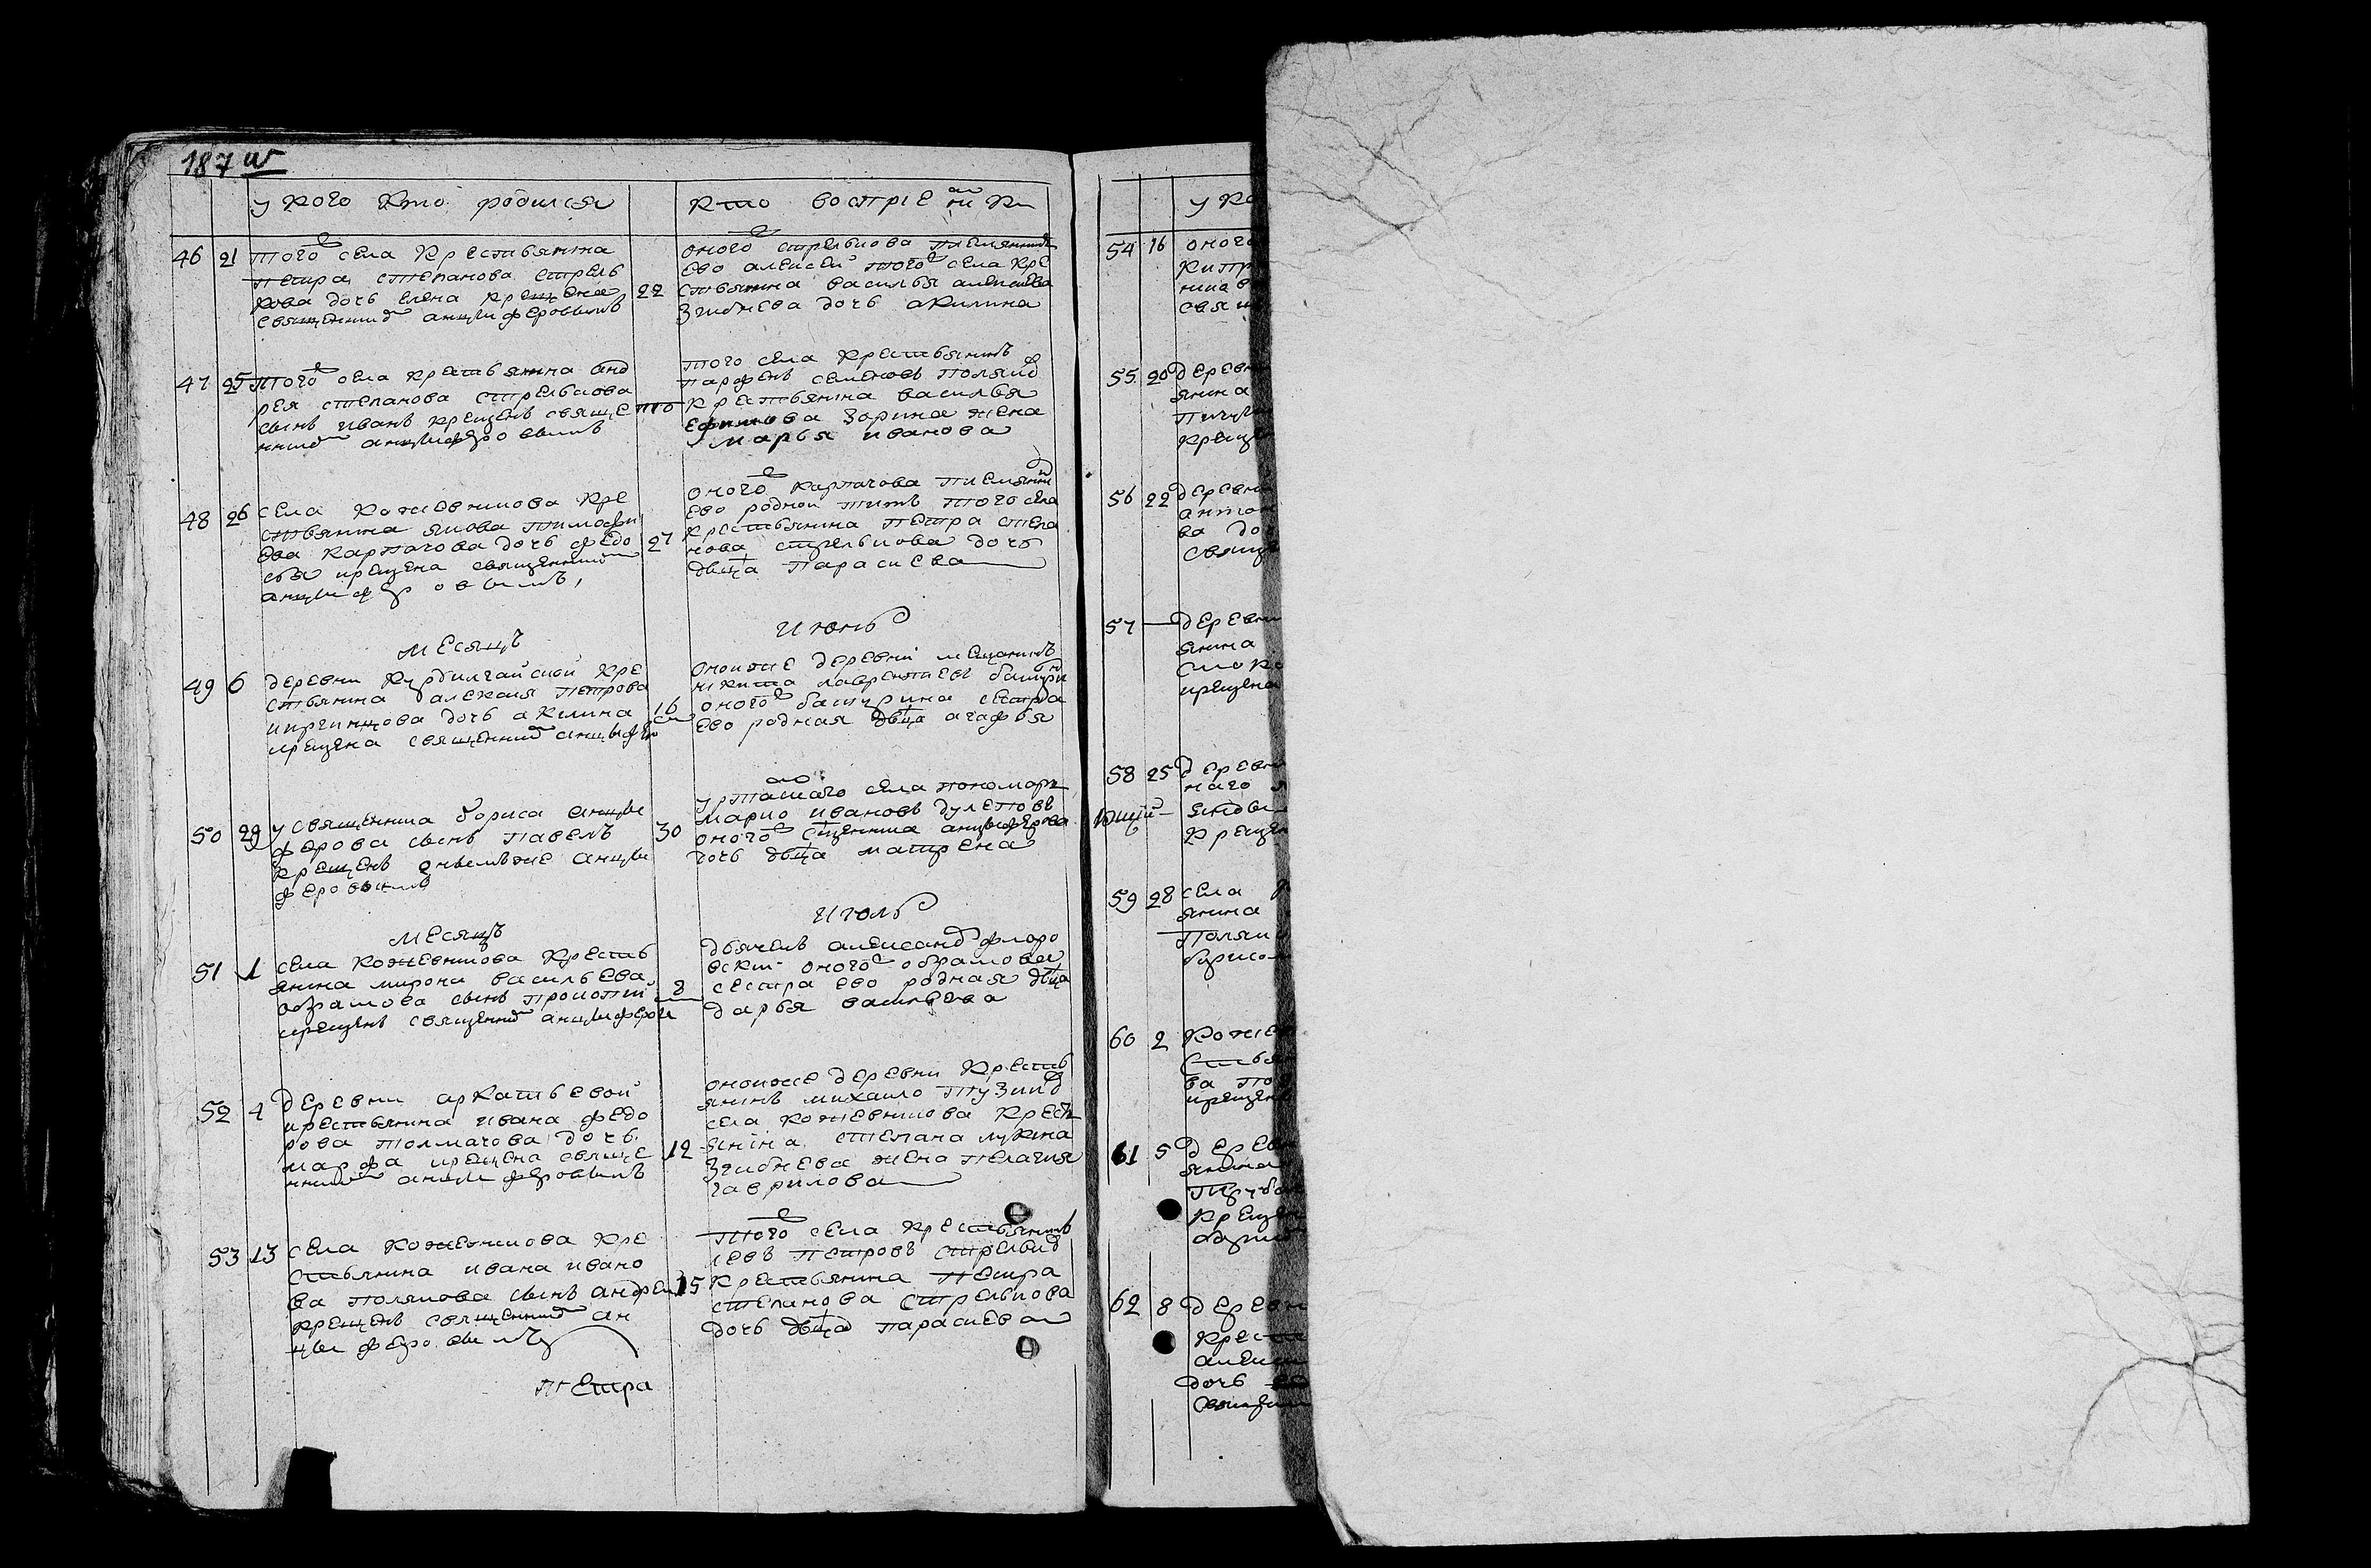 187 об
у кого кто родился
кто восприемники
46 21 того села крестьянина
петра степанова стрель
кова дочь елена крещена
священником анцыферовымъ
22
оного стрелкова племянник
ево алексей того села кре
стьянина василья алексеева
згибнева дочь акилина
47 25 того села крестьянина анд
рея степанова стрелкова
сынъ иванъ крещенъ свяще
нником анцыферовымъ
того села крестьянинъ
парфенъ семеновъ поляков
крестьянина василья
ефимова зорина жена
марья иванова
48 26 села кожевникова кре
стьянина якова тимофи
ева карпачова дочь федо
сья крещена священником
анцыферовымъ
27
оного карпачова племянник
ево родной титъ того села
крестьянина петра степа
нова стрелкова дочь
девица параскева
месяцъ
июнь
49 6 деревни курдилчайской кре
стьянина алексия петрова
киргинцова дочь акилина
крещена священником анцыферо
16
оной же деревни мещанинъ
никита лаврентиевъ батурин
оного батурина сестра
ево родная девица агафья
50 29 у священника бориса анцы
ферова сынъ павелъ
крещенъ онымъ же анцы
феровымъ
30
уртамского села пономарь
марко ивановъ дулеповъ
оного священника анцыферова
дочь девица матрена
месяцъ
июль
51 1 села кожевникова кресть
янина мирона васильева
абрамова сынъ прокопий
крещенъ священником анцыферов
8
дьячекъ александр флоро
вский оного абрамова
сестра ево родная девица
дарья васильева
52 4 деревни аркатьевой
крестьянина ивана федо
рова толмачова дочь
марфа крещена свяще
нником анцыферовымъ
12
оной же деревни кресть
янинъ михаило тузиков
села кожевникова кресть
янина степана лукина
згибнева жена пелагия
гаврилова
53 13 села кожевникова кре
стьянина ивана ивано
ва полякова сынъ андрей
крещенъ священником ан
цыферовымъ
15
того села крестьянинъ
левъ петровъ стрелков
крестьянина петра
степанова стрелкова
дочь девица параскева
петра
у ко
54 16 оного
кипр
55 20 деревн
янина
крещен
56 22 деревни
антон
ва доч
священ
57 деревни
янина
крещена
58 25 деревн
наго
крещен
59 28 села
янина
поляк
борисом
60 2 кожев
стьян
крещен
61 5 дерев
янина
крещен
62 8 деревн
крест
алекс
дочь